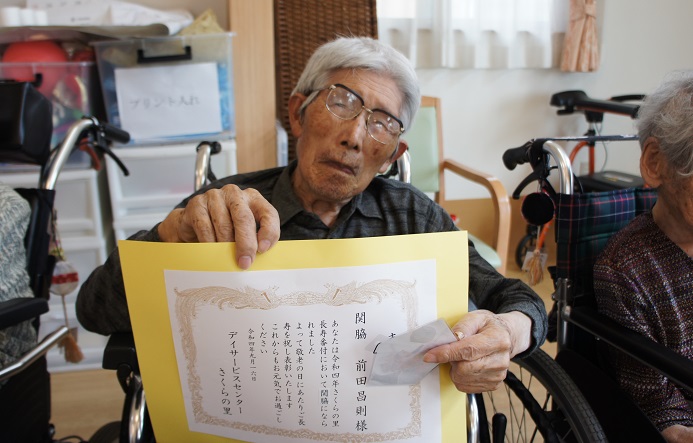 プリント入れ
関脇 前田昌則様
あなたは令和四年さくらの里
長寿番付において関脇になら
れました
よって敬老の日にあたりご長
寿を祝し表彰いたします
これからもお元気でお過ごし
ください
令和四年九月
デイサービスセンター
さくらの里